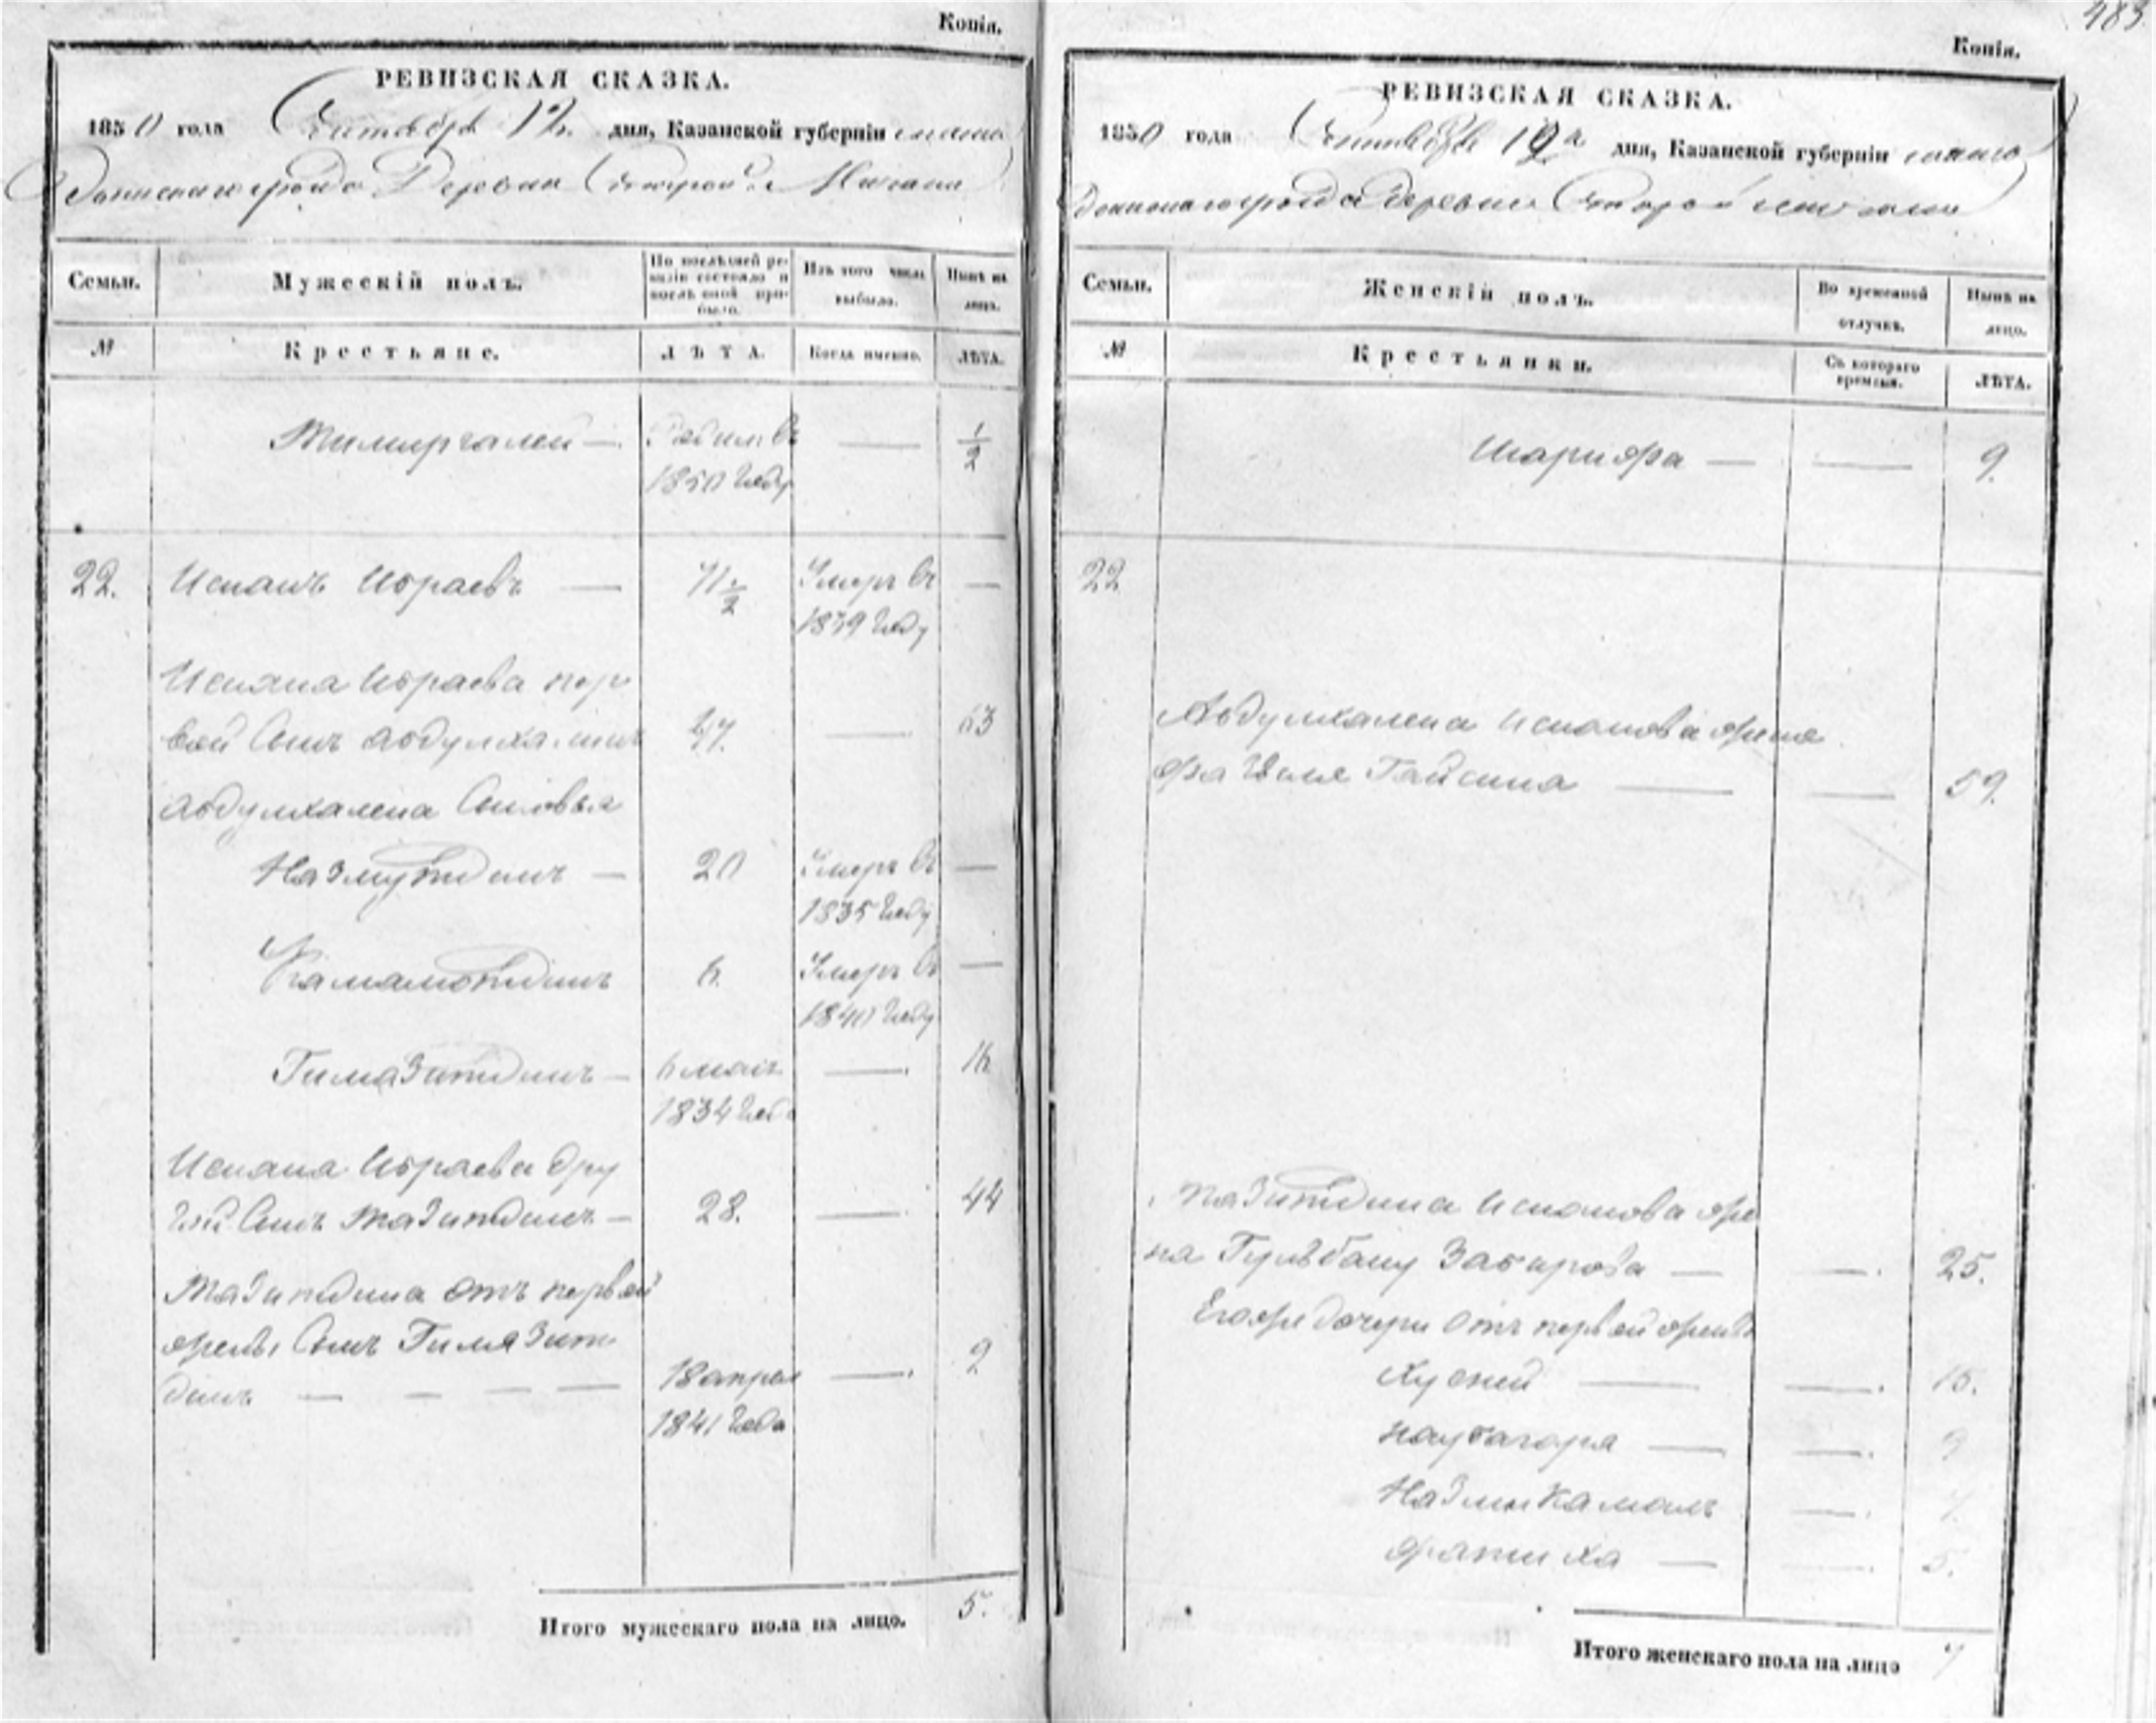 Копія.
РЕВИЗСКАЯ СКАЗКА.
1850 года Октября 12 дня, Казанской губерніи
Деревни Старой
Семьи. Мужескій полъ. По послѣдней ревизіи состояло и послѣ оной прибыло. Изъ того числа выбыло. Нынѣ на лицо.
№ Крестьяне. ЛѢТА. Когда именно. ЛѢТА.
— 1/2
1850 году
22. Исманъ Ибраевъ — Умеръ въ —
1839 году
Исмана Ибраева пер
вой Сынъ Абдулхалинъ 47. — 63
Абдулхалена Сыновья
Назмутдинъ — 20 Умеръ въ —
1835 году
Камалютдинъ 6. Умеръ въ —
1840 году
Гимазитдинъ — 6 маія — 16
1834 года
Исмана Ибраева дру
гой Сынъ Тазитдинъ — 28. — 44
Тазитдина отъ первой
жены Сынъ Гимязит
динъ — — — — 18 апреля — 9
1841 года
Итого мужескаго пола на лицо. 5.
483
Копія.
РЕВИЗСКАЯ СКАЗКА.
1850 года Октября 12 дня, Казанской губерніи
деревни Старой
Семьи. Женскій полъ. Во временной отлучкѣ. Нынѣ на лицо.
№ Крестьянки. Съ котораго времяни. ЛѢТА.
Шарифа — — 9.
22
Абдулхалена Исманова жена
Гайсина — — 59.
Тазитдина Исманова же
на Гульбану Забирова — — 25.
Его же дочери отъ первой жены
Хусней — — 15.
— — 9
Назликамаль — 7.
Фатиха — — 5.
Итого женскаго пола на лицо 7